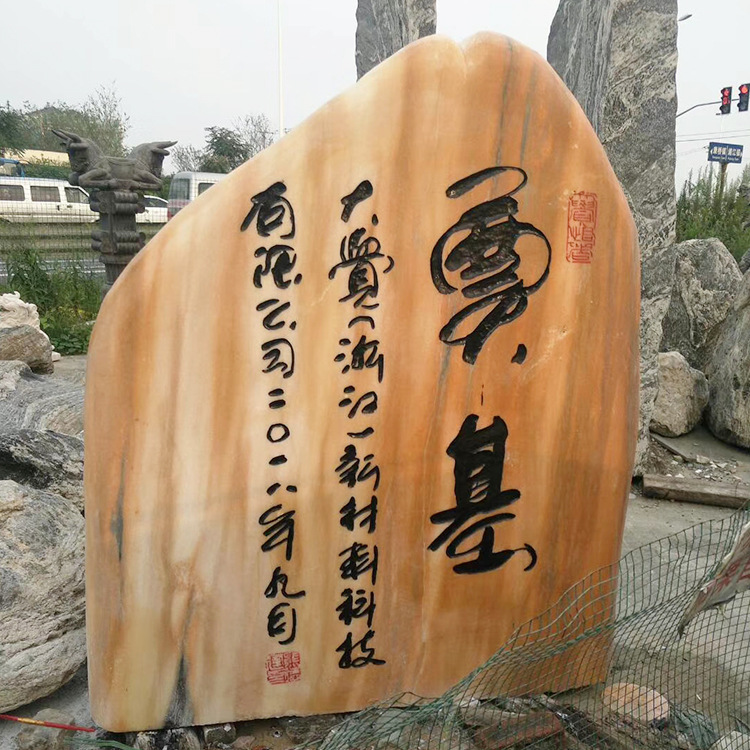 奠基
大觉（浙江）新材料科技
有限公司二〇一八年九月